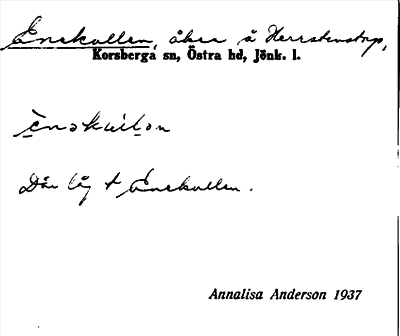 Enekullen, åker å Herrstenstorp,
Korsberga sn, Östra hd, Jönk. l.
Där låg † Enekullen.
Annalisa Anderson 1937